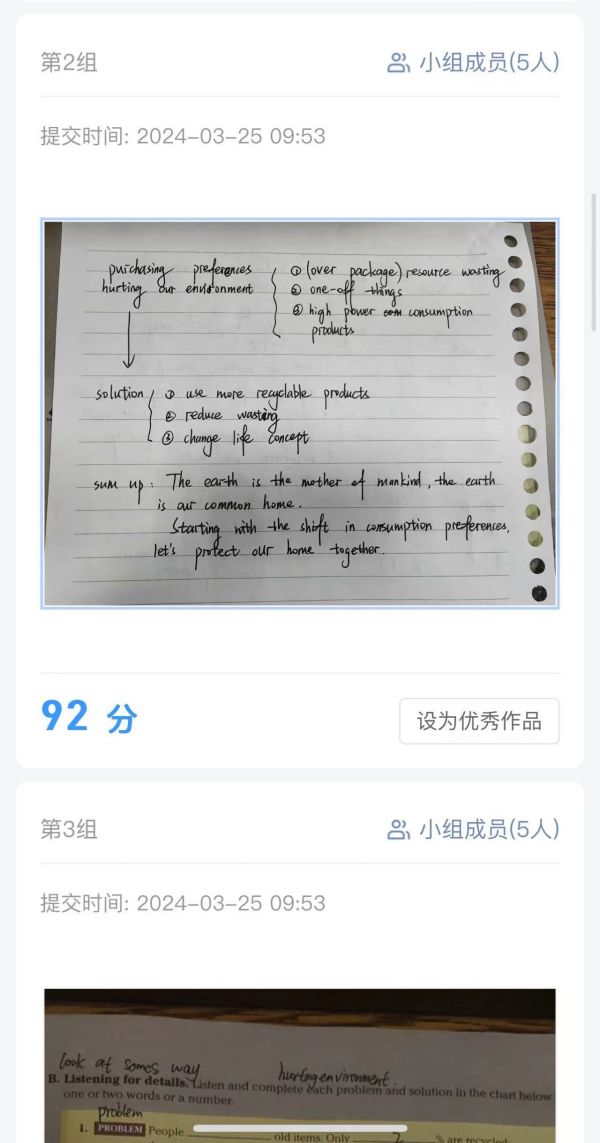 第2组
小组成员(5人)
提交时间: 2024-03-25 09:53
purchasing preferences
hurting our environment
① (over package) resource wasting
② one-off things
③ high power consumption
products
solution
① use more recyclable products
② reduce wasting
③ change life concept
sum up: The earth is the mother of mankind, the earth
is our common home.
Starting with the shift in consumption preferences,
let's protect our home together.
92 分
设为优秀作品
第3组
小组成员(5人)
提交时间: 2024-03-25 09:53
look at somes way
hurting environment.
B. Listening for details. Listen and complete each problem and solution in the chart below
one or two words or a number.
problem
1. PROBLEM People ____ old items. Only ____ % are recycled